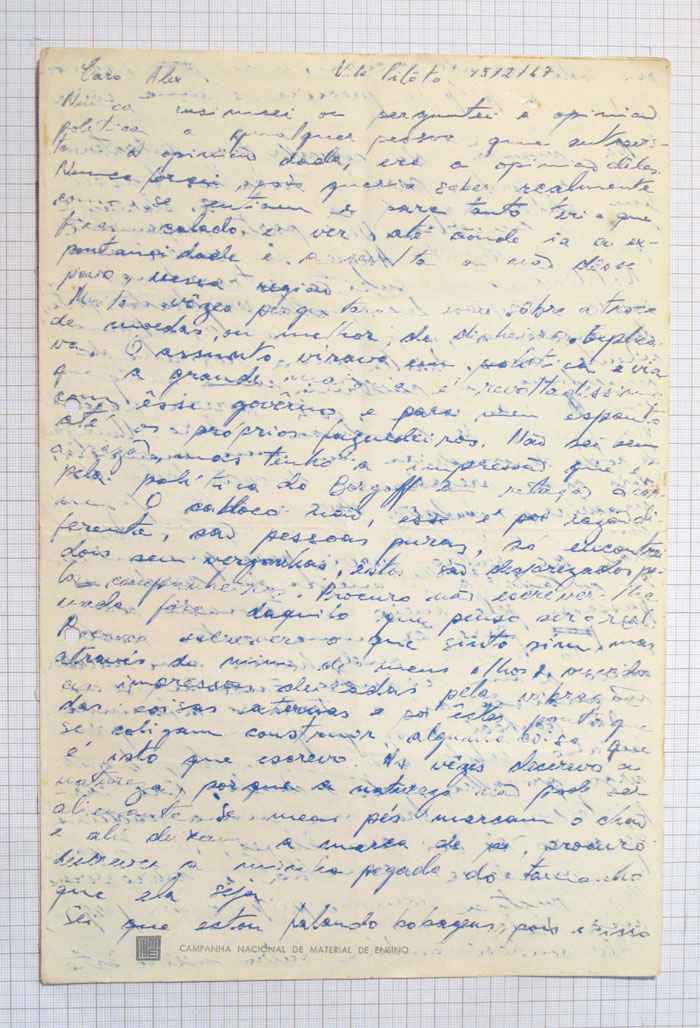 Caro Alex V. de Pilôto 15/2/67
Nunca insinuei ou perguntei a opinião
política a qualquer pessoa que entrevis-
ta. A opinião dada, era a opinião deles.
Nunca pois queria saber realmente
como se sentiam e para tanto teria que
ficar calado e ver até aonde ia a es-
pontaneidade e a ou não dêsse
povo, nessa região.
Muitas vêzes perguntaram sôbre a troca
de moedas, ou melhor, de dinheiro. Explica-
va. O assunto virava em política e via
que a grande maioria é revoltadíssima
com êsse govêrno e para meu espanto
até os próprios fazendeiros. Não sei bem
a razão, mas tenho a impressão que é
pela política do em relação a
O caboco não, esse é por razão di-
ferente, são pessoas puras, só encontrei
dois sem vergonhas, êstes são desprezados pe-
los companheiros. Procuro não escrever-lhe
nada fora daquilo que penso ser o real.
Procuro escrever o que sinto sim, mas
através de mim, de meus olhos, ouvidos
as impressões deixadas pelas vibração
das coisas externas e são êstes pontos que
se coligam construir alguma coisa que
é isto que escrevo. As vêzes descrevo a
natureza, porque a natureza não pode ser
alienante. Se meus pés marcam o chão
e ali deixam a marca do pé, procuro
a minha pegada do tamanho
que ela seja.
Sei que estou falando bobagens, pois é isso
CAMPANHA NACIONAL DE MATERIAL DE ENSINO